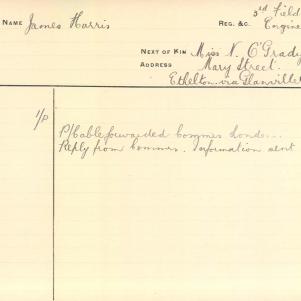 NAME James Harris
REG. &C. 3rd Field
Engine
NEXT OF KIN Miss N. O'Grady
ADDRESS Mary Street
Ethelton via Glanville
1/P
P/Cable forwarded Commrs London...
Reply from Commrs. Information sent